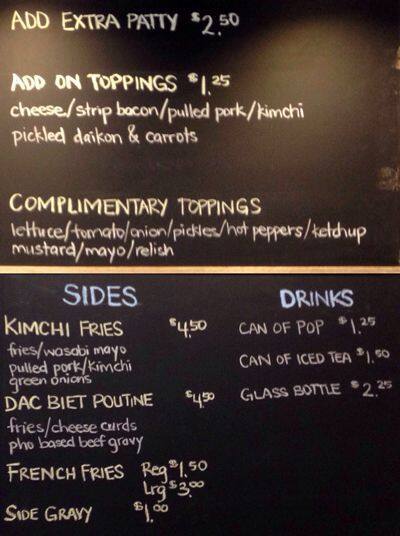 ADD EXTRA PATTY $2.50
ADD ON TOPPINGS $1.25
cheese/strip bacon/pulled pork/kimchi
pickled daikon & carrots
COMPLIMENTARY TOPPINGS
lettuce/tomato/onion/pickles/hot peppers/ketchup
mustard/mayo/relish
SIDES
KIMCHI FRIES $4.50
fries/wasabi mayo
pulled pork/kimchi
green onions
DAC BIET POUTINE $4.50
fries/cheese curds
pho based beef gravy
FRENCH FRIES Reg $1.50
Lrg $3.00
SIDE GRAVY $1.00
DRINKS
CAN OF POP $1.25
CAN OF ICED TEA $1.50
GLASS BOTTLE $2.25